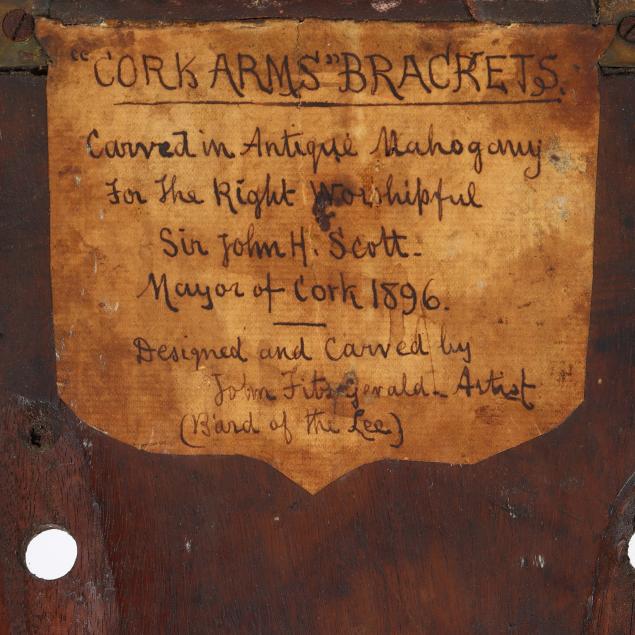 "CORK ARMS" BRACKETS.
Carved in Antique Mahogany
For The Right Worshipful
Sir John H. Scott-
Mayor of Cork 1896.
Designed and Carved by
John Fitzgerald- Artist
(Bard of the Lee)